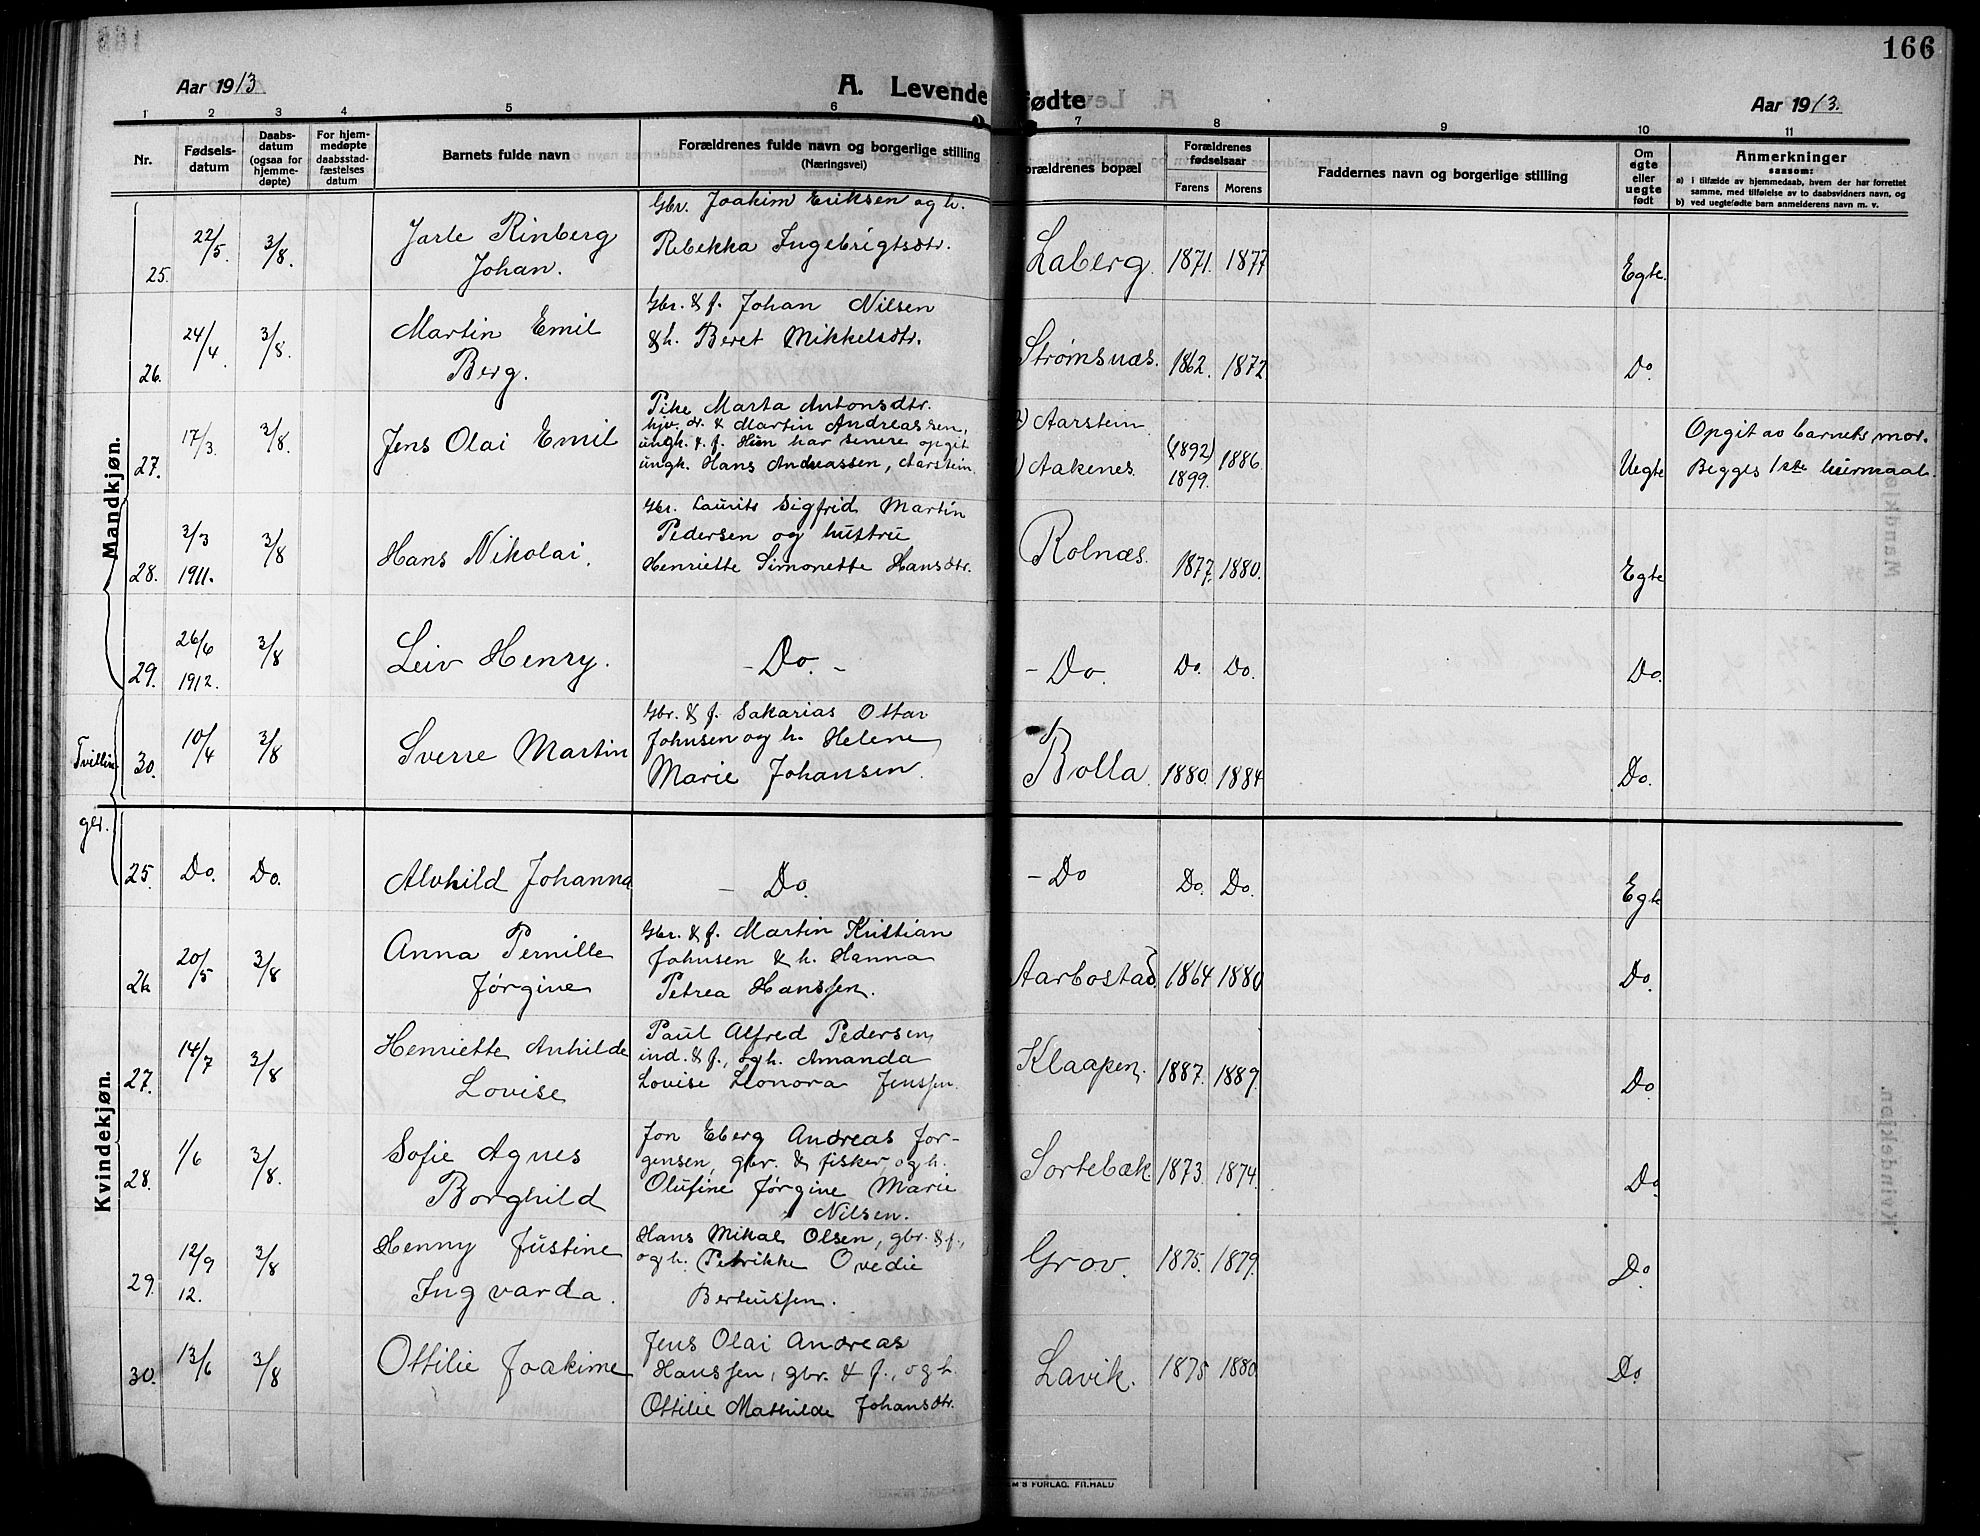 166
Aar 1913.
A. Levende fødte
Aar 1913.
1 2 3 4 5 6 7 8 9 10 11
Nr.
Fødsels-
datum
Daabs-
datum
(ogsaa for
hjemme-
døpte)
For hjem-
medøpte
daabsstad-
fæstelses
datum
Barnets fulde navn
Forældrenes fulde navn og borgerlige stilling
(Næringsvei)
Forældrenes bopæl
Forældrenes
fødselsaar
Farens Morens
Faddernes navn og borgerlige stilling
Om
egte
eller
uegte
født
Anmerkninger
saasom:
a) i tilfælde av hjemmedaab, hvem der har forrettet
samme, med tilføielse av to daabsvidners navn, og
b) ved uegtefødte barn anmelderens navn m. v.
Mandkjøn.
25. 22/5. 3/8. Jarle Rinberg
Johan.
Gbr. Joakim Eriksen og h.
Rebekka Ingebrigtsdtr.
Laberg. 1871. 1877 Egte.
26. 24/4. 3/8. Martin Emil
Berg.
Gbr. & f. Johan Nilsen
& h. Beret Mikkelsdtr.
Strømsnæs. 1862. 1872 Do.
27. 17/3. 3/8. Jens Olai Emil
Pike Marta Antonsdtr.
hjv. dr. & Martin Andreassen,
ungk. & f. Hun har senere opgit
ungk. Hans Andreassen, Aarstein.
Aarstein
Aakenes.
(1892)
1899. 1886. Uegte
Opgit av barnets mor.
Begges 1ste leiermaal.
28. 3/3
1911. 3/8 Hans Nikolai.
Gbr. Laurits Sigfrid Martin
Pedersen og hustru
Henriette Simonette Hansdtr.
Rolnæs. 1877. 1880. Egte
29. 26/6
1912. 3/8 Leiv Henry. - Do. - - Do. Do. Do. Do.
Tvillin-
ger.
30. 10/4 3/8 Sverre Martin
Gbr. & f. Sakarias Ottar
Johnsen og h. Helene
Marie Johansen.
Rolla. 1880. 1884 Do.
Kvindekjøn.
25. Do. Do. Alvhild Johanna - Do. - Do Do. Do. Egte
26 20/5 3/8 Anna Pernille
Jørgine
Gbr. & f. Martin Kristian
Johnsen & h. Hanna
Petrea Hanssen.
Aarbostad 1864 1880 Do.
27. 14/7 3/8 Henriette Anhilde
Lovise
Paul Alfred Pedersen,
ind. & f., og h. Amanda
Lovise Leonora Jenssen.
Klaapen. 1887. 1889. Do.
28. 1/6 3/8. Sofie Agnes
Borghild
Jon Eberg Andreas Jør-
gensen, gbr. & fisker og h.
Olufine Jørgine Marie
Nilsen.
Sortebæk 1873. 1874. Do
29. 12/9
12. 3/8 Henny Justine
Ingvarda.
Hans Mikal Olsen, gbr. & f.,
og h. Petrikke Ovedie
Berteussen.
Grov. 1875. 1879. Do.
30. 13/6 3/8 Ottilie Joakime
Jens Olai Andreas
Hanssen, gbr. & f., og h.
Ottilie Mathilde Johansdtr.
Lavik. 1875 1880. Do.
M'S FORLAG. FR. HALD